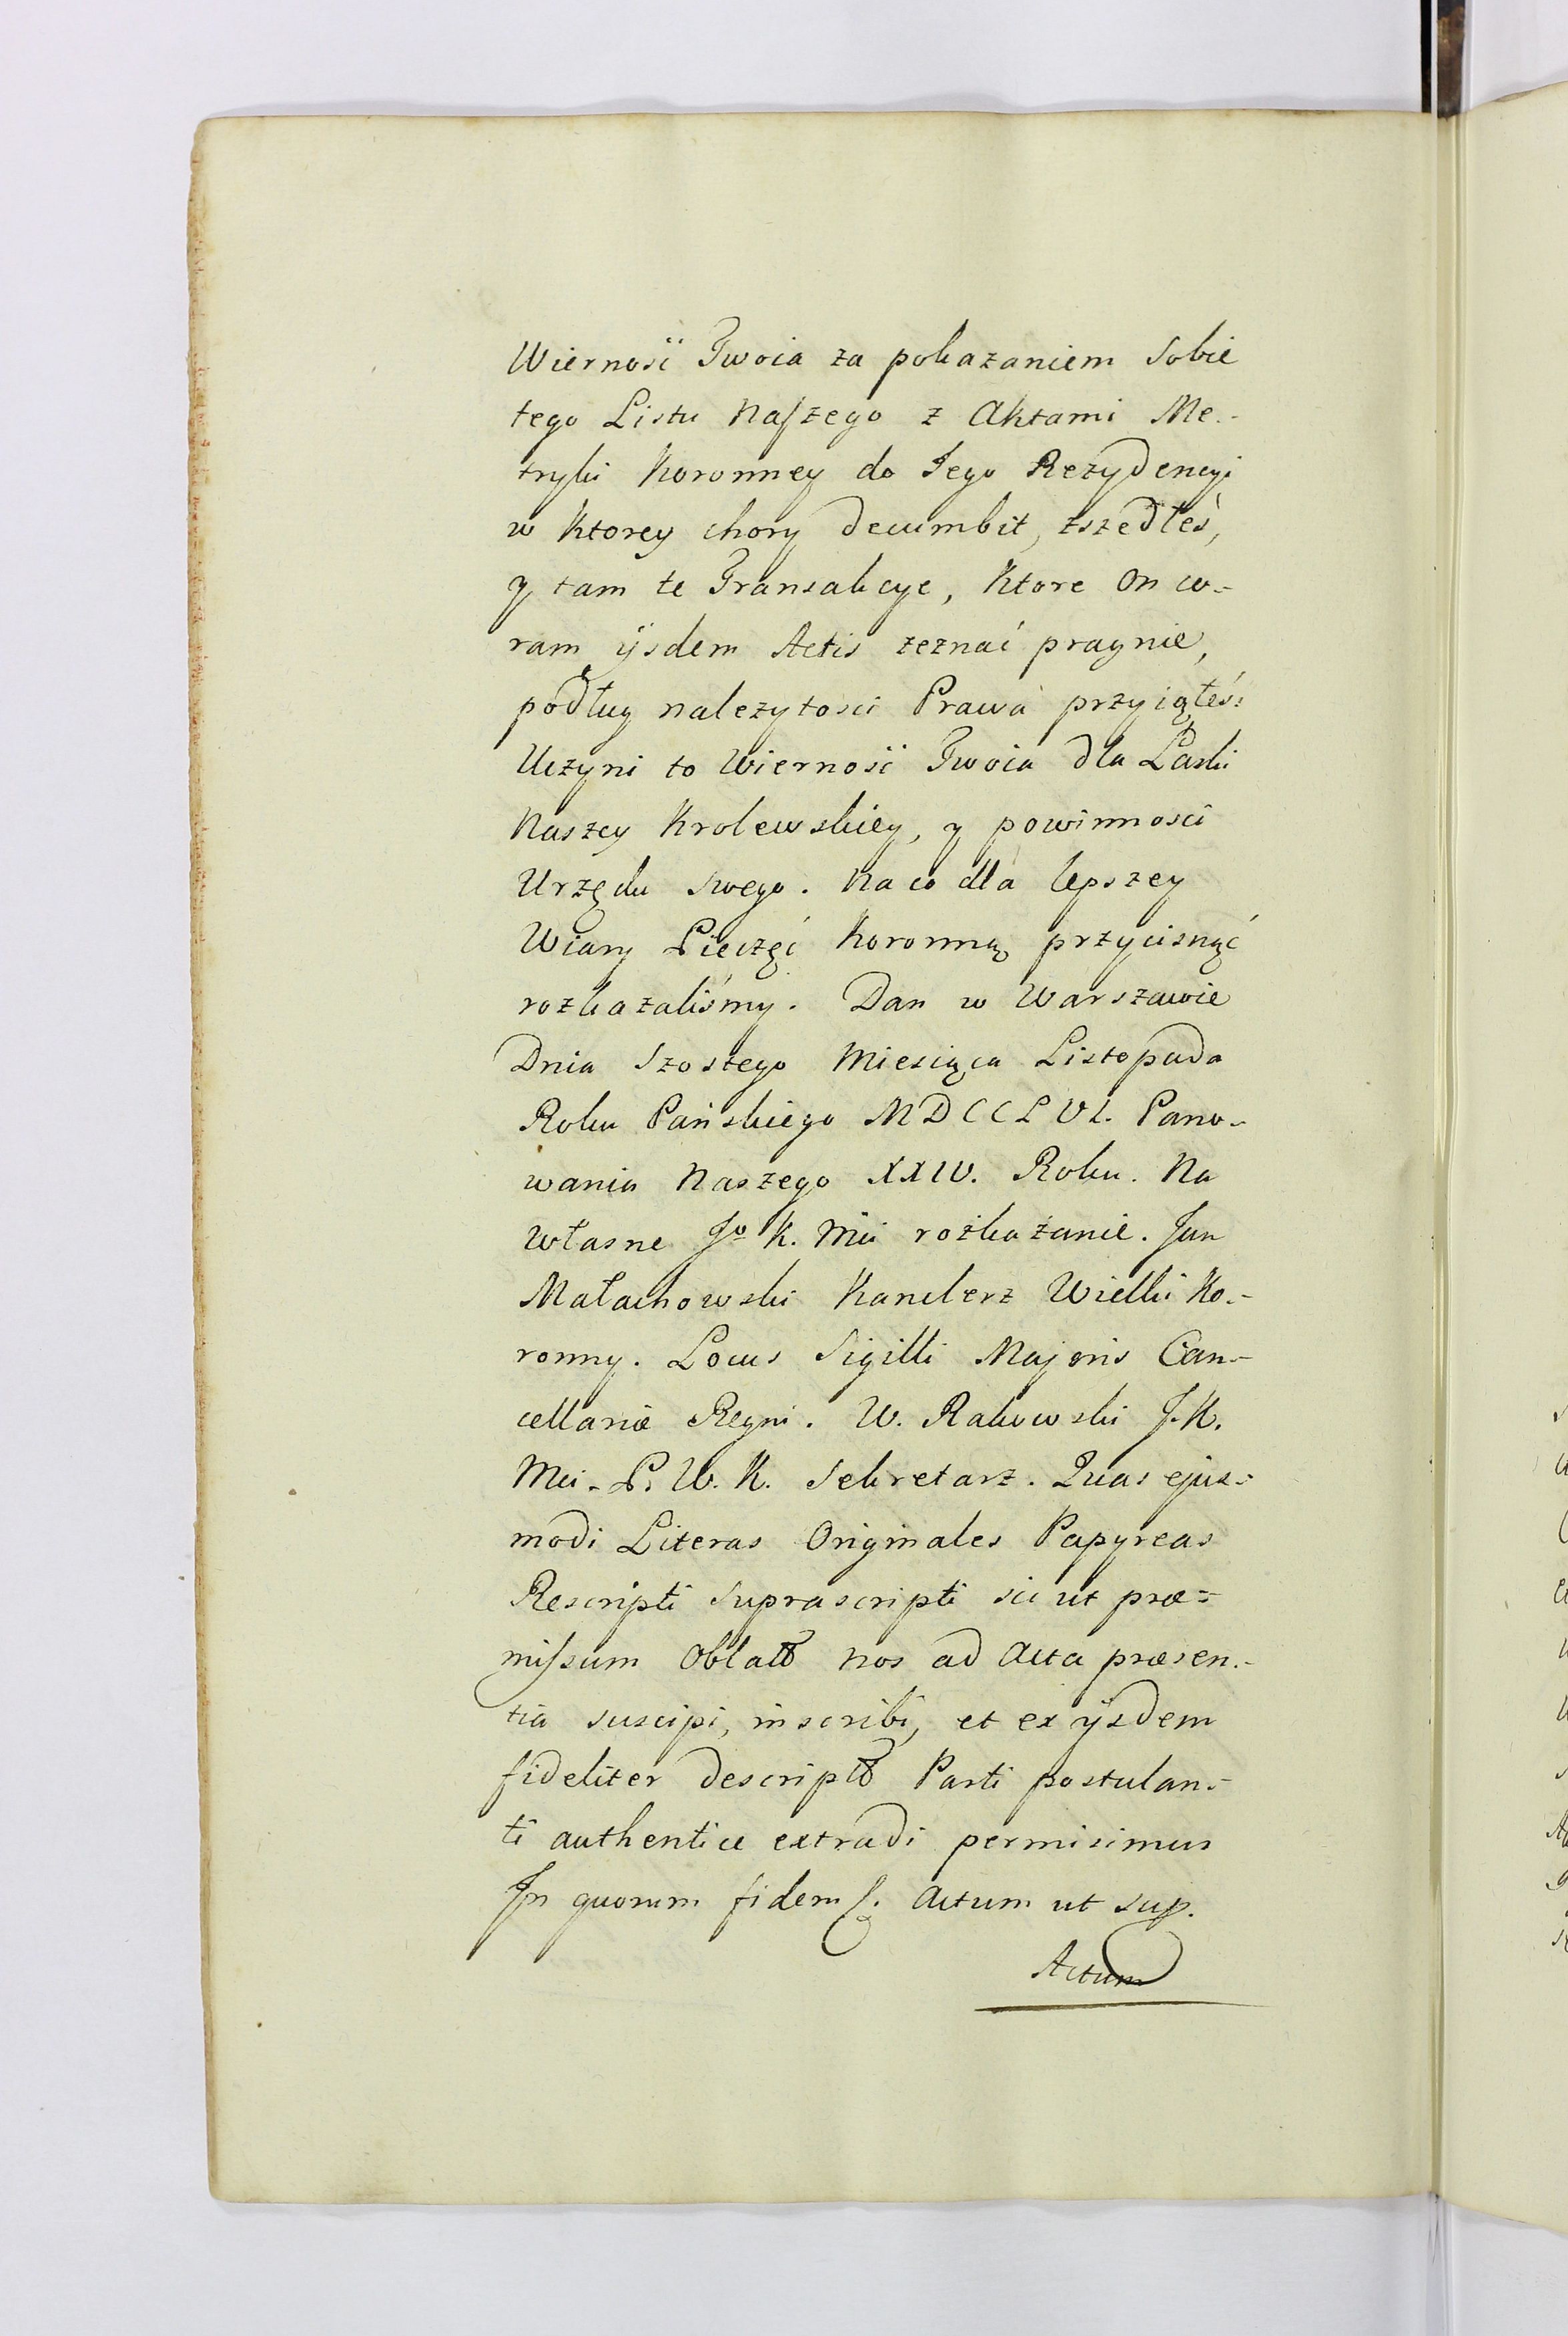 Wierność Twoia za pokazaniem sobie
tego Listu Naszego z Aktami Me-
tryki Koronney do Jego Rezydencyi
w Ktorey chory decumbit, zszedłeś,
y tam te Transakcye, Ktore On co-
ram ijsdem Actis zeznać pragnie,
podług należytości Prawa przyiąłeś:
Uczyni to Wierność Twoia dla Łaski
Naszey Krolewskiey, y powinności
Urzędu swego. Na co dla lepszey
Wiary Pieczęć Koronną przycisnąć
rozkazaliśmy. Dan w Warszawie
Dnia Szostego Miesiąca Listopada
Roku Pańskiego MDCCLVI. Pano-
wania Naszego XXIV. Roku. Na
własne Jo K. Mci rozkazanie. Jan
Małachowski Kanclerz Wielki Ko-
ronny. Locus Sigilli Majoris Can-
cellariæ Regni. W. Rakowski J. K.
Mci. P. W. K. Sekretarz. Quas ejus-
modi Literas Originales Papyreas
Rescripti suprascripti sic ut præ-
missum Oblat nos ad Acta præsen-
tia suscipi, inscribi, et ex ijsdem
fideliter descript Parti postulan-
ti authentice extradi permisimus
In quorum fidem Actum ut sup.
Actum